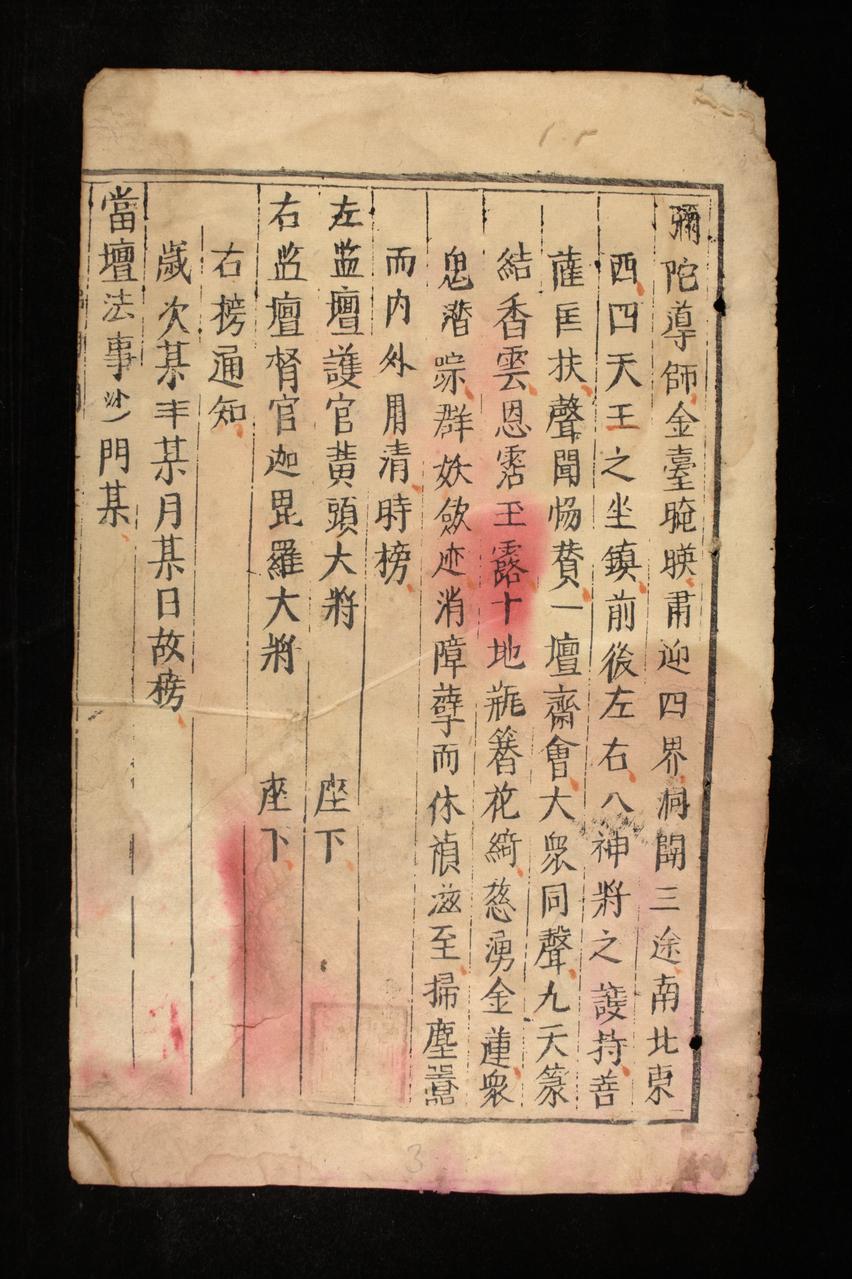 彌陀導師金臺晻暎肅迎四界洞開三途南北東
西四天王之坐鎮前後左右八神將之護持善
薩匡扶聲聞惕贊一壇齋會大衆同聲九天篆
結香雲恩霑玉露十地瓶簪花綺慈湧金蓮衆
鬼潛踪群妖斂迹消障孽而休禎滋至掃塵囂
而内外用清時榜
左監壇護官黃頭大將 座下
右监壇督官迦毘羅大將 座下
右榜通知
歲次某年某月某日故榜
當壇法事沙門某
3